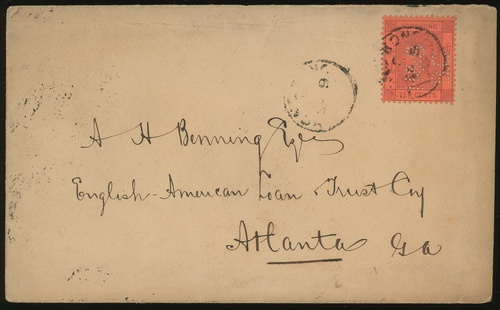 A H Benning Esqr
English-American Loan & Trust Coy
Atlanta Ga